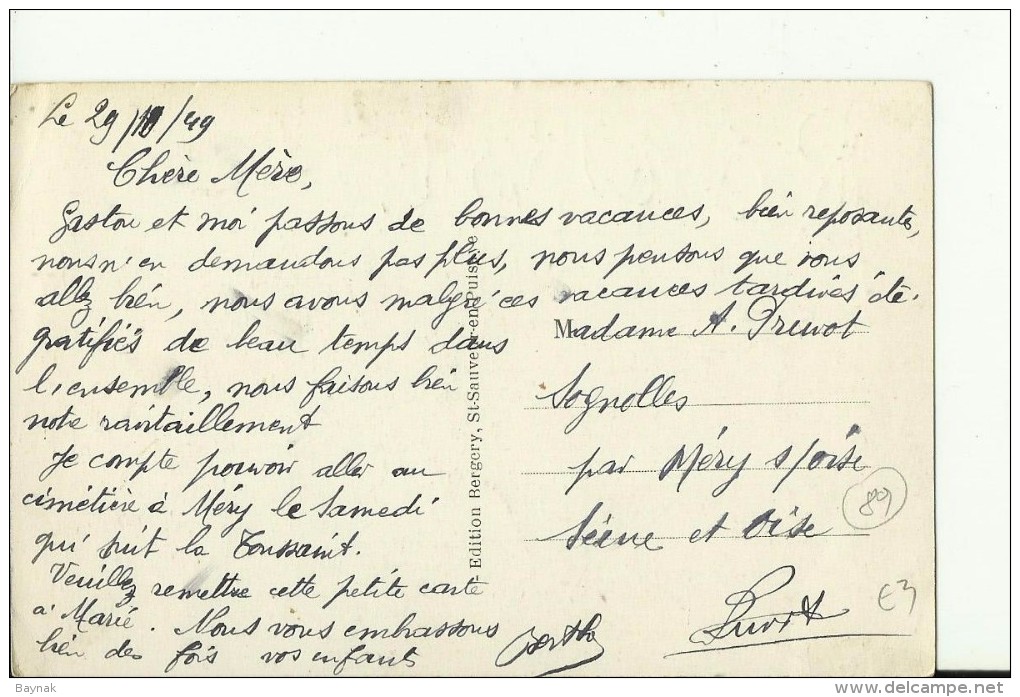 Le 29/10/49
Chère Mère,
Gaston et moi passons de bonnes vacances, bien reposantes,
nous n'en demandons pas plus, nous pensons que vous
allez bien, nous avons malgré ces vacances tardives été
gratifiés de beau temps dans
l'ensemble, nous faisons bien
notre ravitaillement
Je compte pouvoir aller au
cimétière à Méry le Samedi
qui suit la Toussaint.
Veuillez remettre cette petite carte
à Marie. Nous vous embrassons
bien des fois vos enfants
Berthe
Edition Bergery, St-Sauveur-en-Puisaye
Madame A. Pruvot
Sognolles
par Méry s/oise
Seine et Oise
Pruvot
89
€3
Baynak
www.delcampe.net